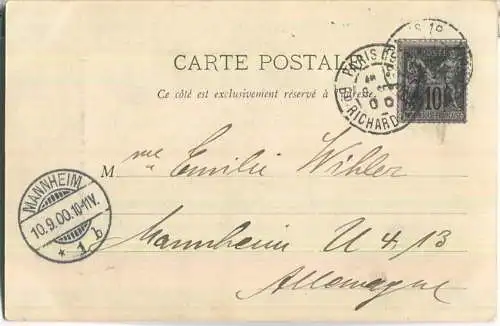 CARTE POSTALE
Ce côté est exclusivement réservé à l'adresse.
PARIS
Bd RICHARD
10
Mme Emilie Wihler
Mannheim U 4 13
Allemagne
MANNHEIM
10.9.00.10-11V.
* 1 b